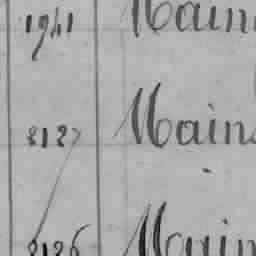 1941 Main
8127 Mains
8126 Main